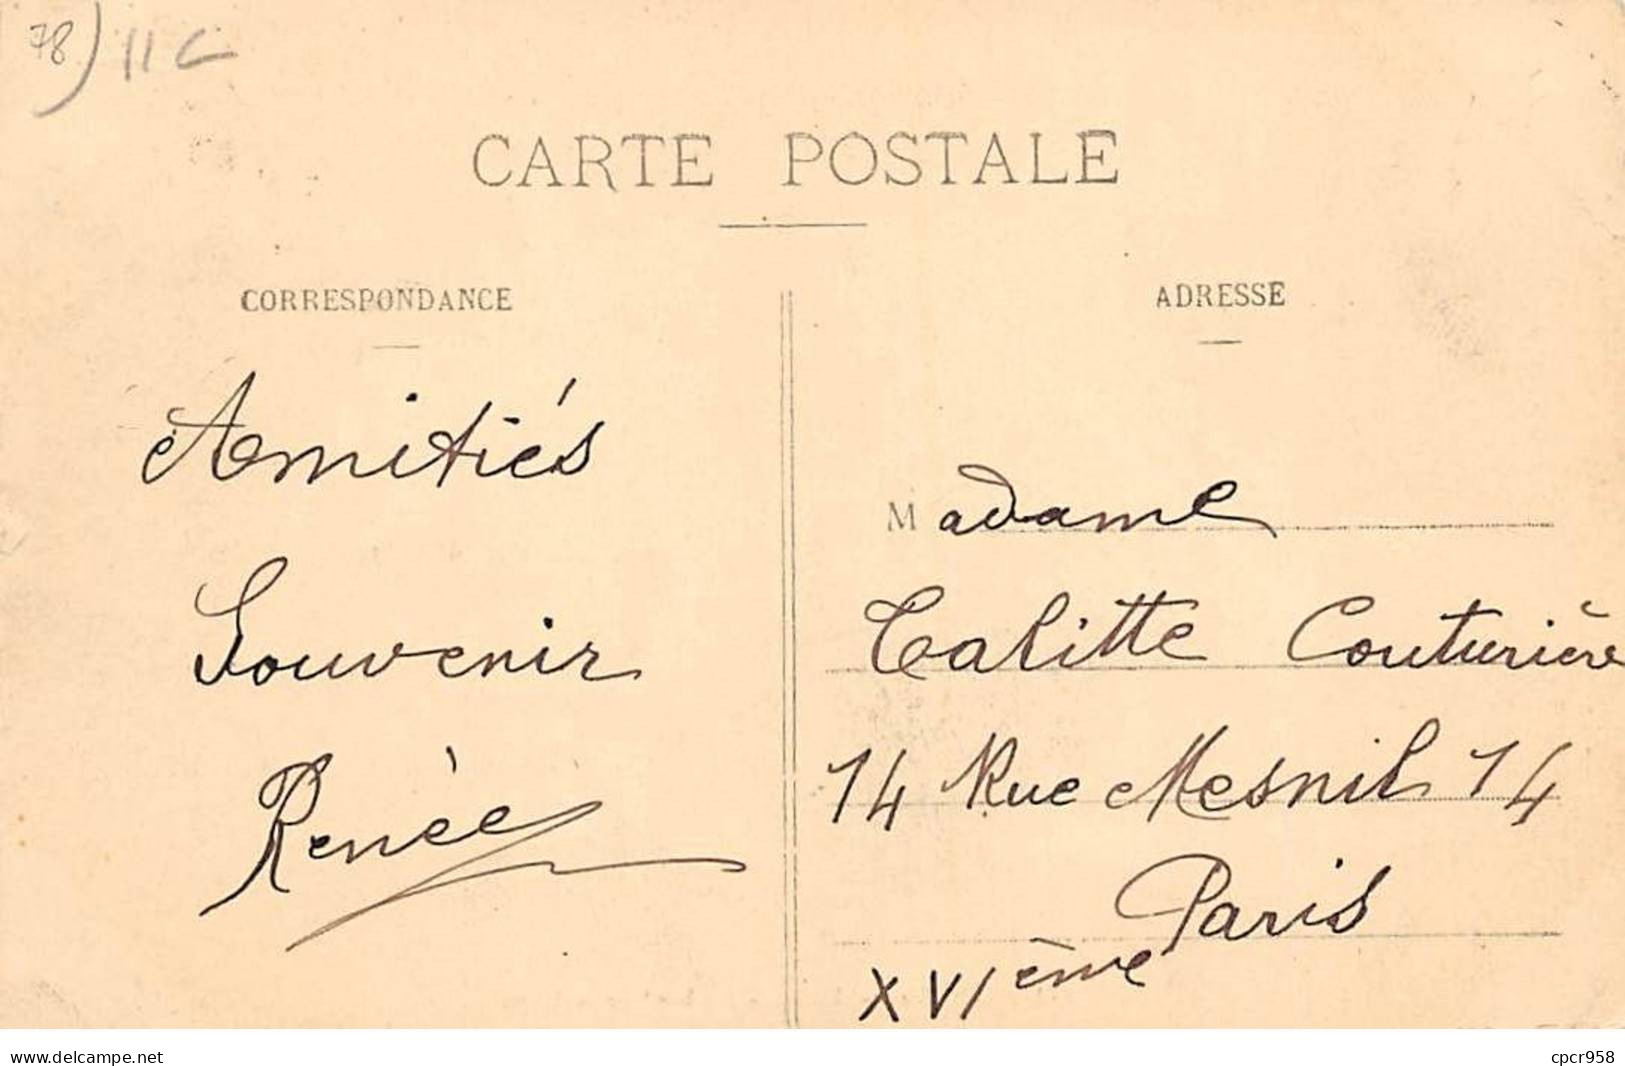 78) 11 C
CARTE POSTALE
CORRESPONDANCE
Amitiés
Souvenir
Renée
ADRESSE
Madame
Talitte Couturière
14 Rue Mesnil 14
Paris
XVIème
www.delcampe.net
cpcr958